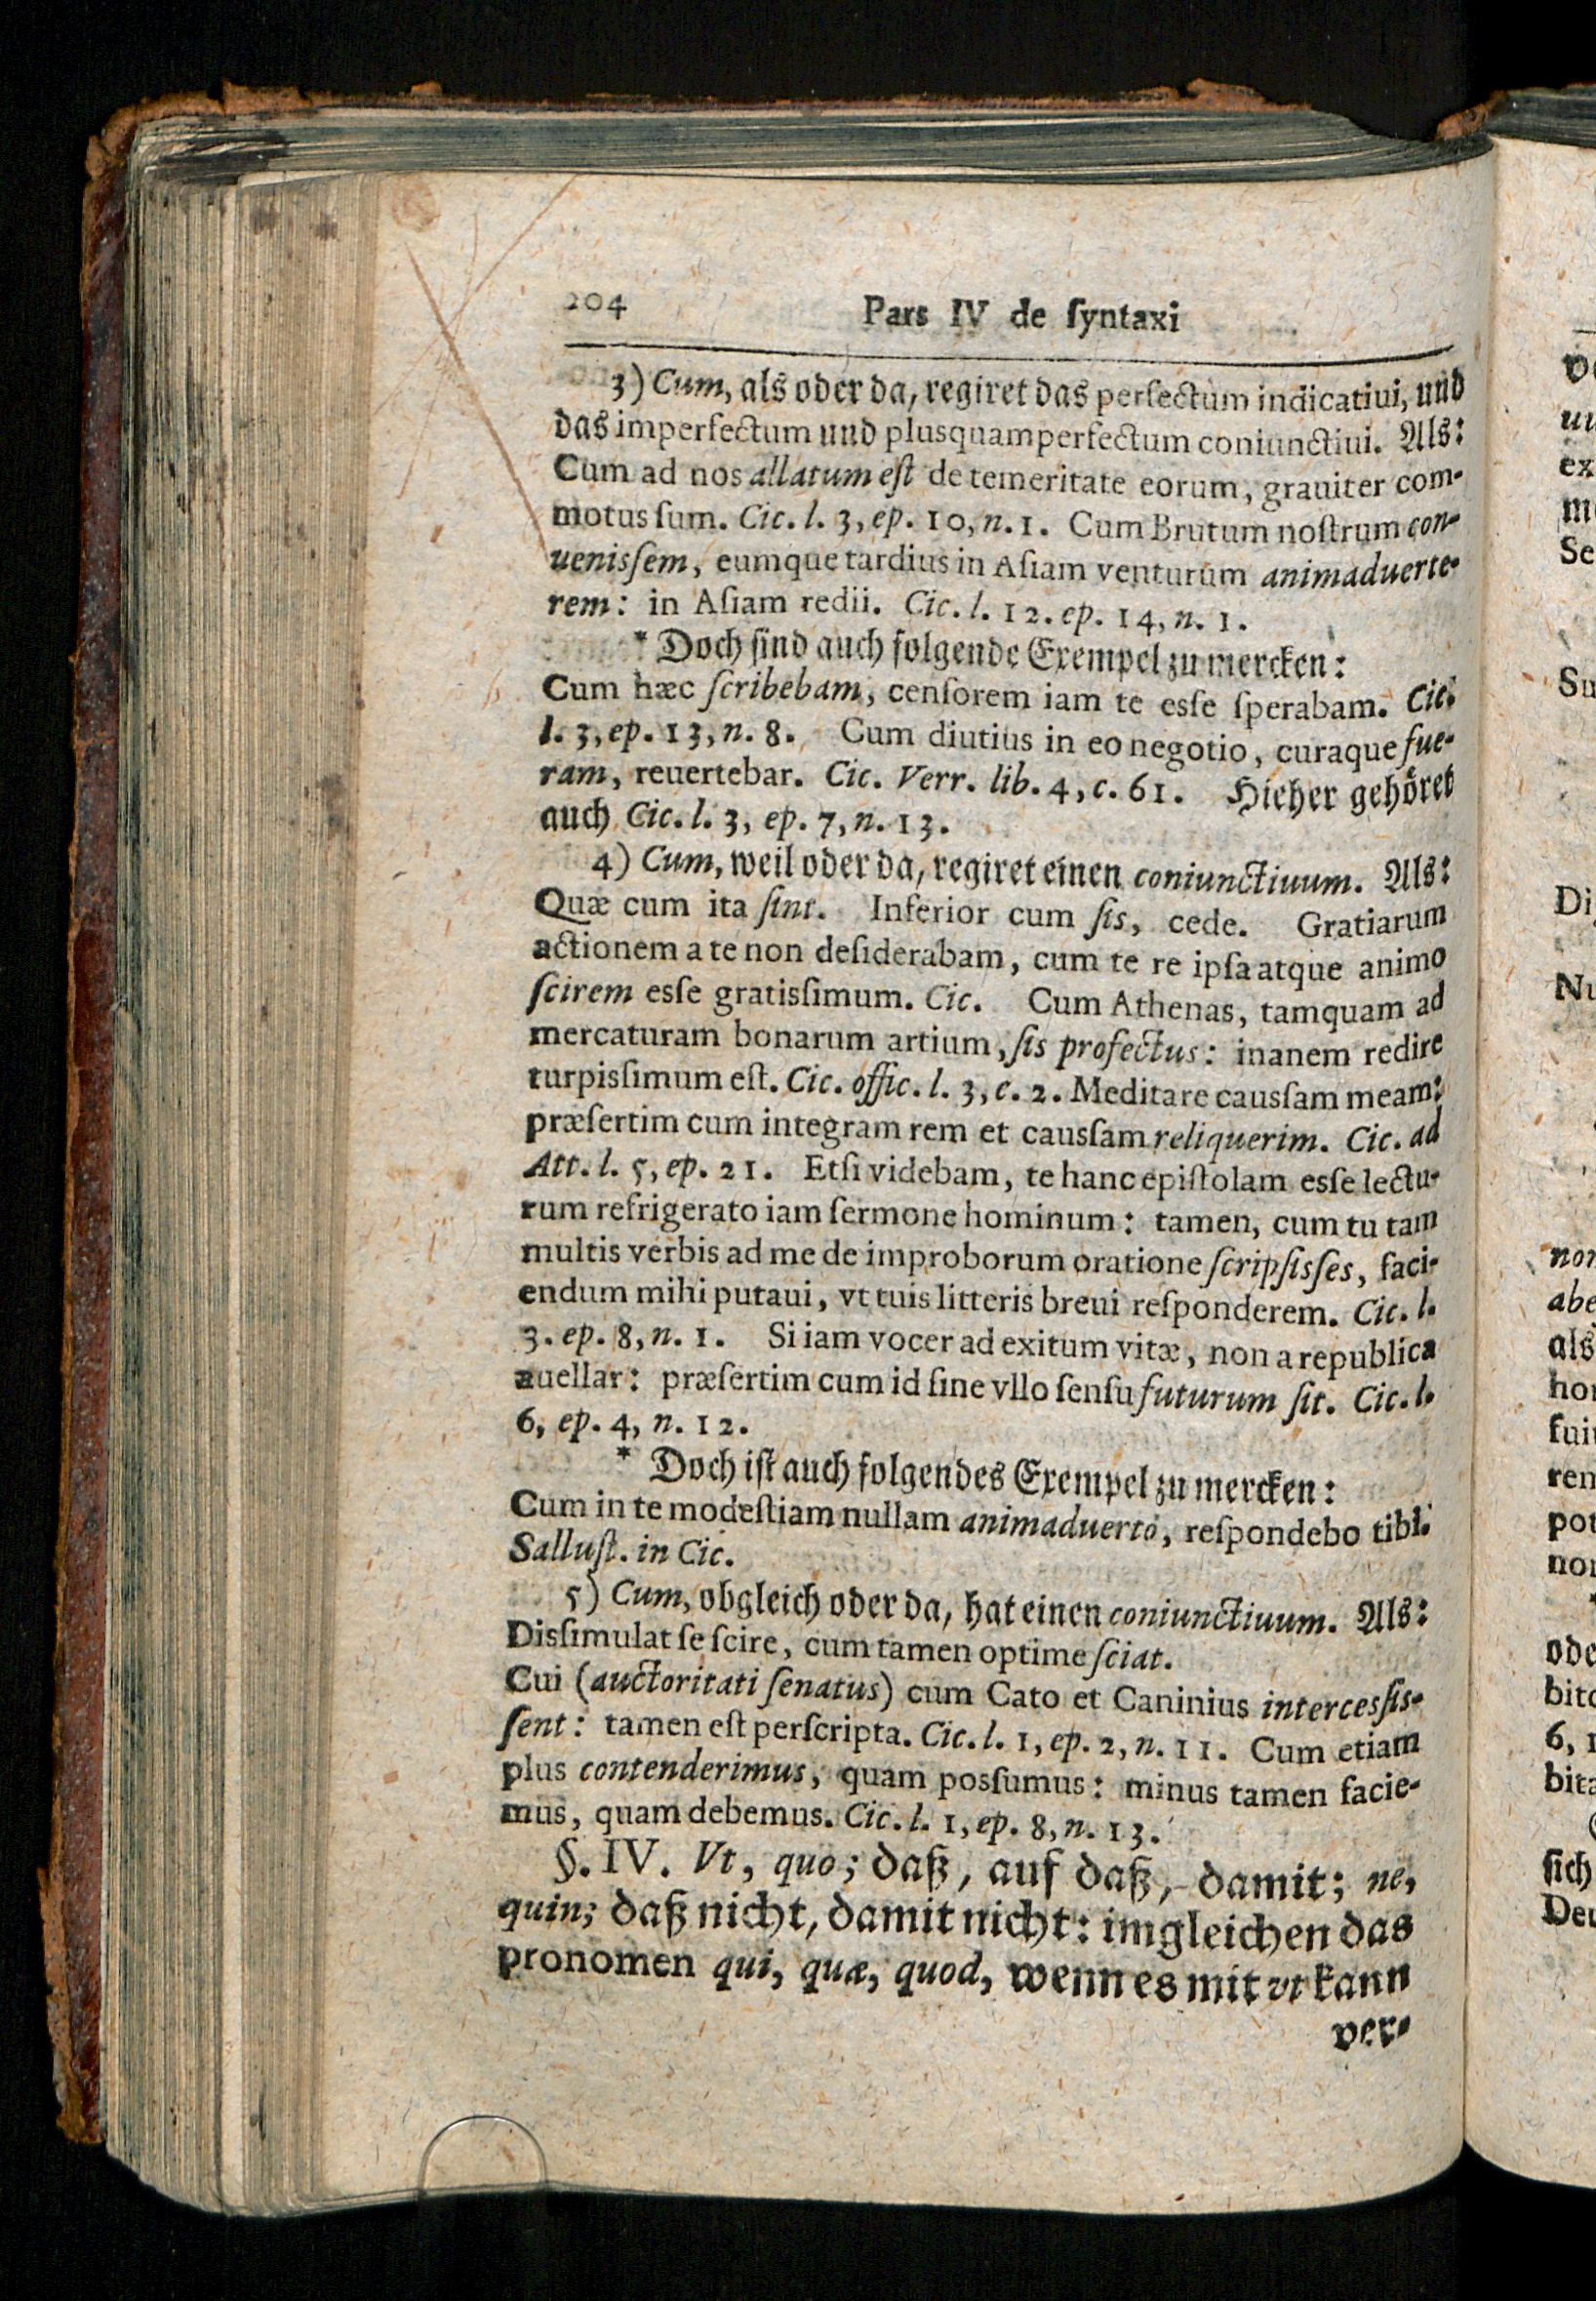 204 Pars IV de ſyntaxi
3) Cum, als oder da, regiret das perfectum indicatiui, und
das imperfectum und plusquamperfectum coniunctiui. Als:
Cum ad nos allatum eſt de temeritate eorum, grauiter com-
motus ſum. Cic. l. 3, ep. 10, n. 1. Cum Brutum noſtrum con-
uenisſem, eumque tardius in Aſiam venturum animaduerte-
rem: in Aſiam redii. Cic. l. 12. ep. 14, n. 1.
* Doch ſind auch folgende Exempel zu mercken:
Cum hæc ſcribebam, cenſorem iam te esſe ſperabam. Cic.
l. 3, ep. 13, n. 8. Cum diutius in eo negotio, curaque fue-
ram, reuertebar. Cic. Verr. lib. 4, c. 61. Hieher gehöret
auch Cic. l. 3, ep. 7, n. 13.
4) Cum, weil oder da, regiret einen coniunctiuum. Als:
Quæ cum ita ſint. Inferior cum ſis, cede. Gratiarum
actionem a te non deſiderabam, cum te re ipſa atque animo
ſcirem esſe gratisſimum. Cic. Cum Athenas, tamquam ad
mercaturam bonarum artium, ſis profectus: inanem redire
turpisſimum eſt. Cic. offic. l. 3, c. 2. Meditare causſam meam:
præſertim cum integram rem et causſam reliquerim. Cic. ad
Att. l. 5, ep. 21. Etſi videbam, te hanc epiſtolam esſe lectu-
rum refrigerato iam ſermone hominum: tamen, cum tu tam
multis verbis ad me de improborum oratione ſcripſisſes, faci-
endum mihi putaui, vt tuis litteris breui reſponderem. Cic. l.
3. ep. 8, n. 1. Si iam vocer ad exitum vitæ, non a republica
auellar: præſertim cum id ſine vllo ſenſu futurum ſit. Cic. l.
6, ep. 4, n. 12.
* Doch iſt auch folgendes Exempel zu mercken:
Cum in te modeſtiam nullam animaduerto, reſpondebo tibi.
Salluſt. in Cic.
5) Cum, obgleich oder da, hat einen coniunctiuum. Als:
Disſimulat ſe ſcire, cum tamen optime ſciat.
Cui (auctoritati ſenatus) cum Cato et Caninius intercesſis-
ſent: tamen eſt perſcripta. Cic. l. 1, ep. 2, n. 11. Cum etiam
plus contenderimus, quam posſumus: minus tamen facie-
mus, quam debemus. Cic. l. 1, ep. 8, n. 13.
§. IV. Vt, quo; daß, auf daß, damit; ne,
quin; daß nicht, damit nicht: imgleichen das
pronomen qui, quæ, quod, wenn es mit vt kann
ver-